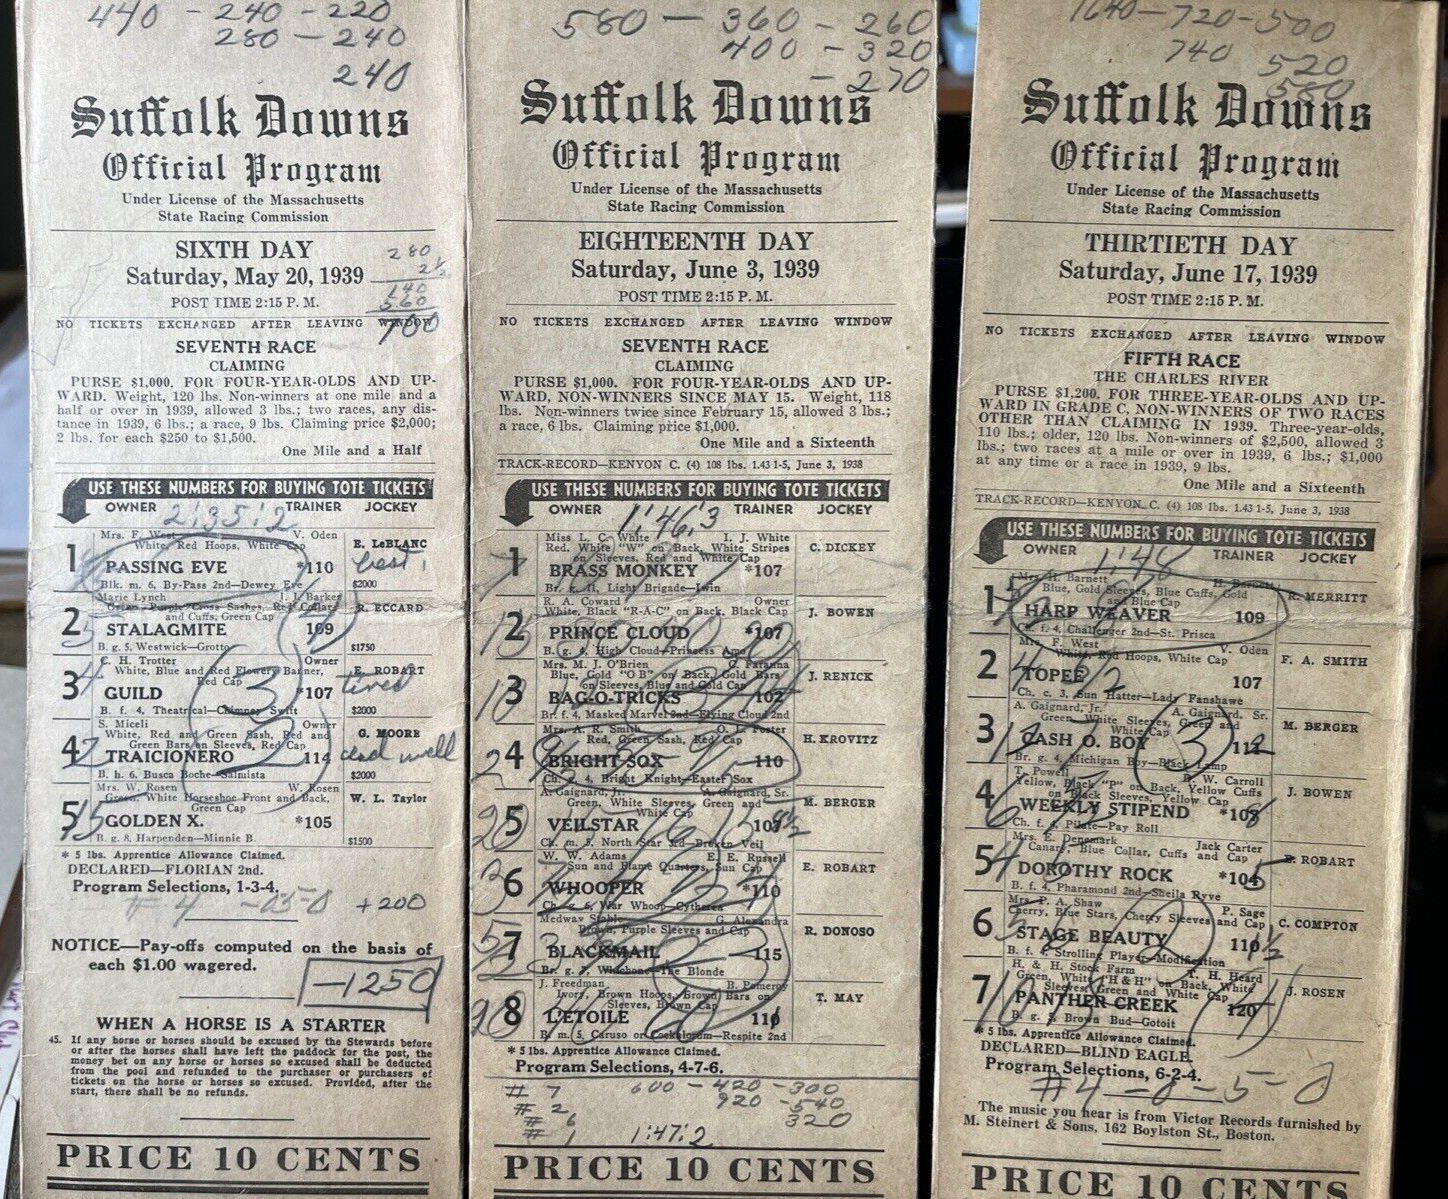 440 - 240 - 220
280 - 240
240
Suffolk Downs
Official Program
Under License of the Massachusetts
State Racing Commission
SIXTH DAY
Saturday, May 20, 1939
POST TIME 2:15 P. M.
280
2½
140
560
700
NO TICKETS EXCHANGED AFTER LEAVING WINDOW
SEVENTH RACE
CLAIMING
PURSE $1,000. FOR FOUR-YEAR-OLDS AND UP-
WARD. Weight, 120 lbs. Non-winners at one mile and a
half or over in 1939, allowed 3 lbs.; two races, any dis-
tance in 1939, 6 lbs.; a race, 9 lbs. Claiming price $2,000;
2 lbs. for each $250 to $1,500.
One Mile and a Half
USE THESE NUMBERS FOR BUYING TOTE TICKETS
OWNER TRAINER JOCKEY
2:35:2
Mrs. F. West V. Oden
White, Red Hoops, White Cap
1 PASSING EVE *110 E. LeBLANC
Blk. m. 6, By-Pass 2nd—Dewey Eve $2000
best.
Marie Lynch J. L. Barker
Green, Purple Cross Sashes, Red Collar
and Cuffs, Green Cap
2 STALAGMITE 109 R. ECCARD
B. g. 5, Westwick—Grotto $1750
C. H. Trotter Owner
White, Blue and Red Flowery Banner,
Red Cap
3 GUILD *107 E. ROBART
B. f. 4, Theatrical—Chimney Swift $2000
tired
S. Miceli Owner
White, Red and Green Sash, Red and
Green Bars on Sleeves, Red Cap
4 TRAICIONERO 114 G. MOORE
B. h. 6, Busca Boche—Salmista $2000
and well
Mrs. W. Rosen W. Rosen
Green, White Horseshoe Front and Back,
Green Cap
5 GOLDEN X. *105 W. L. Taylor
B. g. 8, Harpenden—Minnie B. $1500
* 5 lbs. Apprentice Allowance Claimed.
DECLARED—FLORIAN 2nd.
Program Selections, 1-3-4.
# 4 +200
NOTICE—Pay-offs computed on the basis of
each $1.00 wagered.
-1250
WHEN A HORSE IS A STARTER
45. If any horse or horses should be excused by the Stewards before
or after the horses shall have left the paddock for the post, the
money bet on any horse or horses so excused shall be deducted
from the pool and refunded to the purchaser or purchasers of
tickets on the horse or horses so excused. Provided, after the
start, there shall be no refunds.
PRICE 10 CENTS
580 - 360 - 260
400 - 320
- 270
Suffolk Downs
Official Program
Under License of the Massachusetts
State Racing Commission
EIGHTEENTH DAY
Saturday, June 3, 1939
POST TIME 2:15 P. M.
NO TICKETS EXCHANGED AFTER LEAVING WINDOW
SEVENTH RACE
CLAIMING
PURSE $1,000. FOR FOUR-YEAR-OLDS AND UP-
WARD, NON-WINNERS SINCE MAY 15. Weight, 118
lbs. Non-winners twice since February 15, allowed 3 lbs.;
a race, 6 lbs. Claiming price $1,000.
One Mile and a Sixteenth
TRACK-RECORD—KENYON C. (4) 108 lbs. 1.43 1-5, June 3, 1938
USE THESE NUMBERS FOR BUYING TOTE TICKETS
OWNER TRAINER JOCKEY
1:46:3
Miss L. C. White I. J. White
Red, White "W" on Back, White Stripes
on Sleeves, Red and White Cap
1 BRASS MONKEY *107 C. DICKEY
Br. g. 11, Light Brigade—Twin
R. A. Coward Owner
White, Black "R-A-C" on Back, Black Cap
2 PRINCE CLOUD *107 J. BOWEN
B. g. 4, High Cloud—Princess Amo
Mrs. M. J. O'Brien C. Fafanna
Blue, Gold "OB" on Back, Gold Bars
on Sleeves, Blue and Gold Cap
3 BAG-O-TRICKS 102 J. RENICK
Br. f. 4, Masked Marvel 2nd—Flying Cloud 2nd
Mrs. A. R. Smith O. L. Foster
Red, Green Sash, Red Cap
4 BRIGHT SOX 110 H. KROVITZ
Ch. g. 4, Bright Knight—Easter Sox
A. Gaignard, Jr. A. Gaignard, Sr.
Green, White Sleeves, Green and
White Cap
5 VEILSTAR 107 M. BERGER
Ch. m. 5, North Star 3rd—Broken Veil
W. W. Adams E. E. Russell
Sun and Blame Quarters, Sun Cap
6 WHOOPER *110 E. ROBART
Ch. g. 6, War Whoop—Cytherea
Medway Stable G. Alexandra
Brown, Purple Sleeves and Cap
7 BLACKMAIL 115 R. DONOSO
Br. g. 7, Whichone—The Blonde
J. Freedman B. Pomeroy
Ivory, Brown Hoops, Brown Bars on
Sleeves, Brown Cap
8 L'ETOILE 110 T. MAY
B. m. 5, Caruso or Cockolorum—Respite 2nd
* 5 lbs. Apprentice Allowance Claimed.
Program Selections, 4-7-6.
# 7 600 - 420 - 300
# 2 920 - 540
# 6 320
# 1 1:47:2
PRICE 10 CENTS
1640 - 720 - 500
740 520
580
Suffolk Downs
Official Program
Under License of the Massachusetts
State Racing Commission
THIRTIETH DAY
Saturday, June 17, 1939
POST TIME 2:15 P. M.
NO TICKETS EXCHANGED AFTER LEAVING WINDOW
FIFTH RACE
THE CHARLES RIVER
PURSE $1,200. FOR THREE-YEAR-OLDS AND UP-
WARD IN GRADE C, NON-WINNERS OF TWO RACES
OTHER THAN CLAIMING IN 1939. Three-year-olds,
110 lbs.; older, 120 lbs. Non-winners of $2,500, allowed 3
lbs.; two races at a mile or over in 1939, 6 lbs.; $1,000
at any time or a race in 1939, 9 lbs.
One Mile and a Sixteenth
TRACK-RECORD—KENYON C. (4) 108 lbs. 1.43 1-5, June 3, 1938
USE THESE NUMBERS FOR BUYING TOTE TICKETS
OWNER TRAINER JOCKEY
1:48
Mrs. H. Barnett H. Barnett
Blue, Gold Sleeves, Blue Cuffs, Gold
and Blue Cap
1 HARP WEAVER 109 R. MERRITT
Ch. f. 4, Challenger 2nd—St. Prisca
Mrs. F. West V. Oden
White, Red Hoops, White Cap
2 TOPEE 107 F. A. SMITH
Ch. c. 3, Sun Hatter—Lady Fanshawe
A. Gaignard, Jr. A. Gaignard, Sr.
Green, White Sleeves, Green and
White Cap
3 CASH O. BOY 112 M. BERGER
Br. g. 4, Michigan Boy—Black Lamp
T. Powell B. W. Carroll
Yellow, Black "P" on Back, Yellow Cuffs
on Black Sleeves, Yellow Cap
4 WEEKLY STIPEND *108 J. BOWEN
Ch. f. 4, Pilate—Pay Roll
Mrs. E. Denemark Jack Carter
Canary, Blue Collar, Cuffs and Cap
5 DOROTHY ROCK *104 E. ROBART
B. f. 4, Pharamond 2nd—Sheila Ryve
Mrs. P. A. Shaw P. Sage
Cherry, Blue Stars, Cherry Sleeves and Cap
6 STAGE BEAUTY 110 C. COMPTON
B. f. 4, Strolling Player—Modification
H. & H. Stock Farm T. H. Heard
Green, White "H & H" on Back, White
Sleeves, Green and White Cap
7 PANTHER CREEK 120 J. ROSEN
B. g. 5, Brown Bud—Gotoit
* 5 lbs. Apprentice Allowance Claimed.
DECLARED—BLIND EAGLE.
Program Selections, 6-2-4.
#4 - 0 - 5 - 0
The music you hear is from Victor Records furnished by
M. Steinert & Sons, 162 Boylston St., Boston.
PRICE 10 CENTS